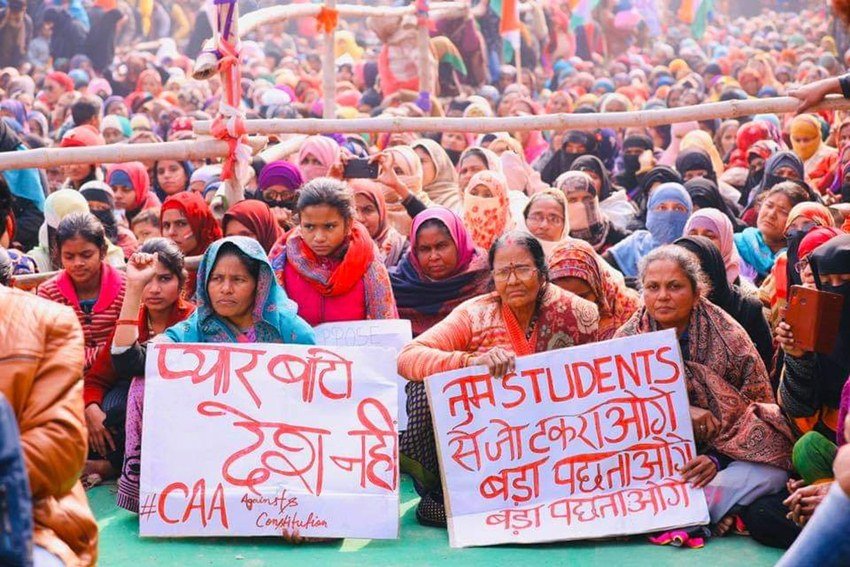 OPPOSE
प्यार बांटो
देश नहीं
#CAA Against
Constitution
तुम STUDENTS
से जो टकराओगे
बड़ा पछताओगे
बड़ा पछताओगे